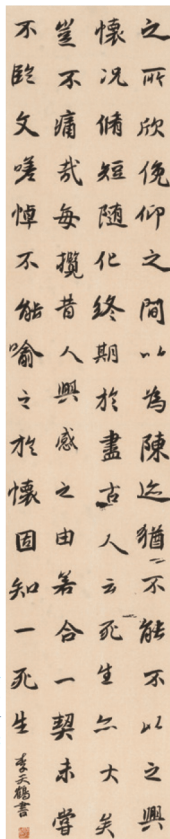 之所欣俛仰之間以為陳迹猶不能不以之興
懷況脩短隨化終期於盡古人云死生亦大矣
豈不痛哉每攬昔人興感之由若合一契未嘗
不臨文嗟悼不能喻之於懷固知一死生
李天鶴書